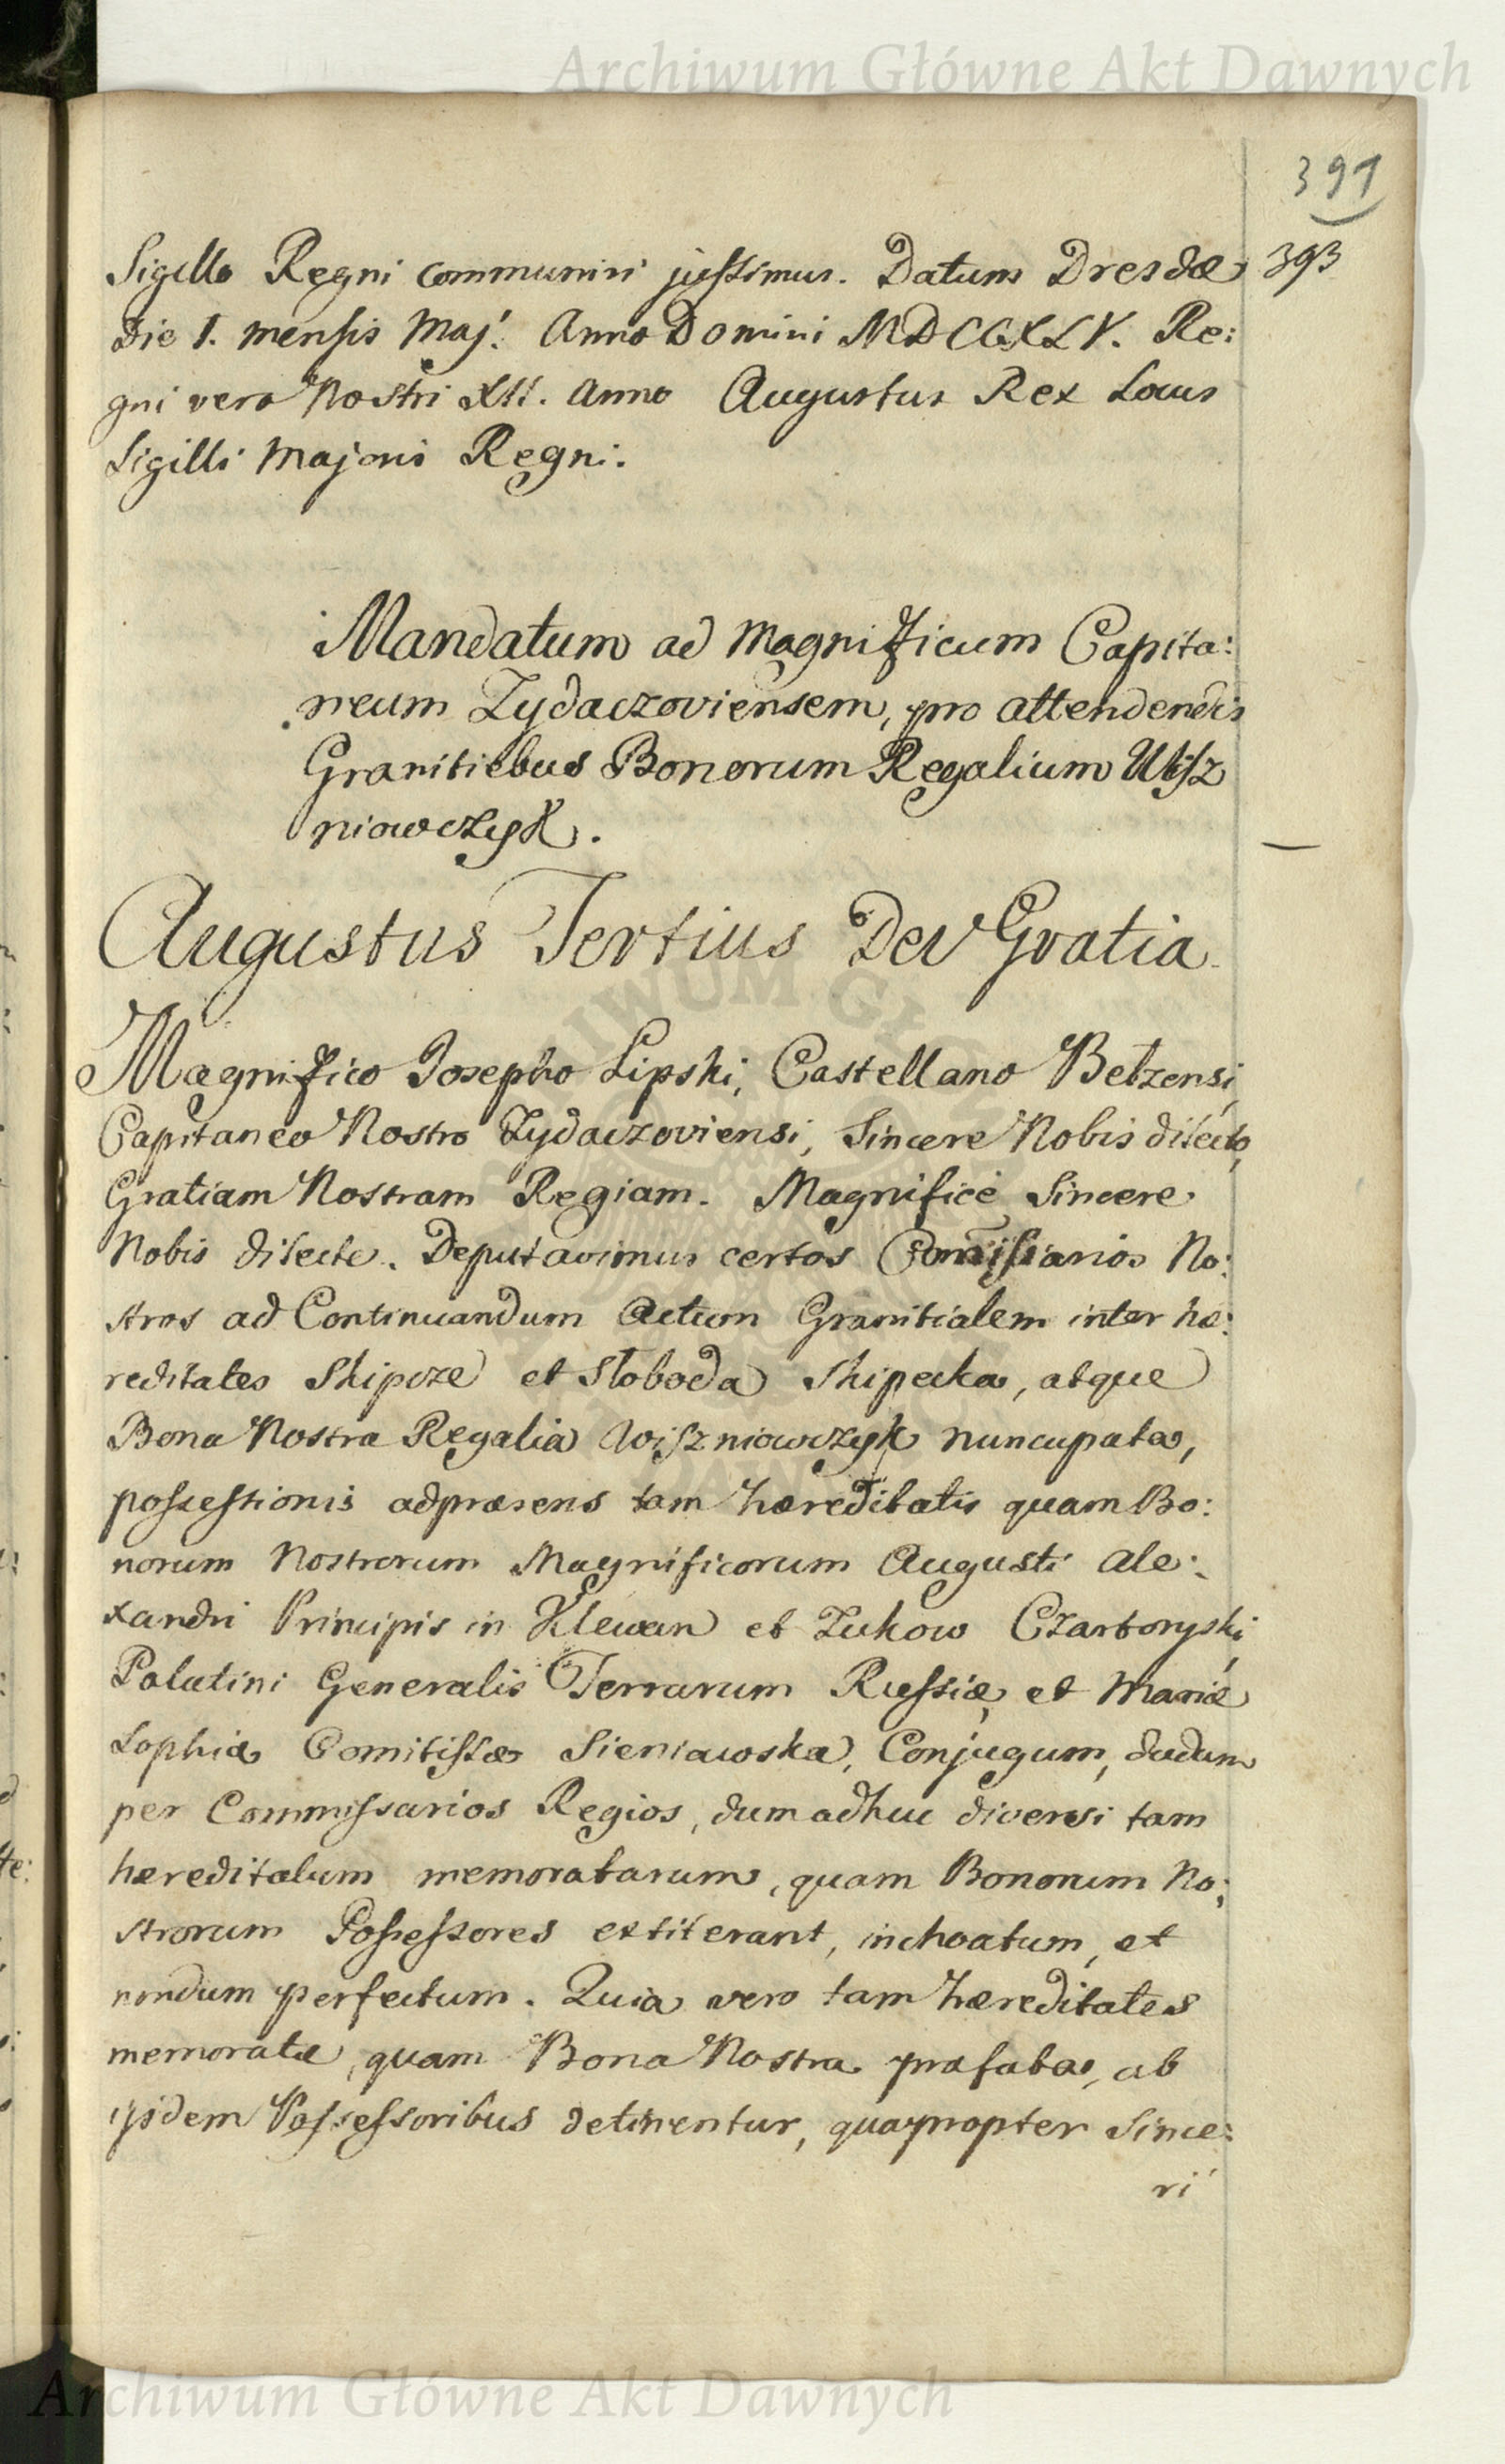 Archiwum Główne Akt Dawnych
391
393
Sigillo Regni communiri jussimus. Datum Dresdæ
Die I. mensis Maj. Anno Domini MDCCXLV. Re:
gni vero Nostri XII. Anno Augustus Rex Locus
Sigilli Majoris Regni.
Mandatum ad Magnificum Capita:
neum Zydaczoviensem, pro attendendis
Granitiebus Bonorum Regalium Wisz
niowczyk.
Augustus Tertius Dei Gratia
Magnifico Josepho Lipski, Castellano Betzensi,
Capitaneo Nostro Zydaczoviensi, Sincere Nobis dilecto,
Gratiam Nostram Regiam. Magnifice Sincere
Nobis dilecte. Deputavimus certos Com̃issarios No:
stros ad Continuandum Actum Granitialem inter hæ:
reditates Skipcze et Słoboda Skipecka, atque
Bona Nostra Regalia Wiszniowczyk nuncupata,
possessionis adpræsens tam hæreditatis quam Bo:
norum Nostrorum Magnificorum Augusti Ale:
xandri Principis in Klewan et Zukow Czartoryski,
Palatini Generalis Terrarum Russiæ, et Mariæ
Sophiæ Comitissæ Sieniawska, Conjugum, dudum
per Commissarios Regios, dum adhuc diversi tam
hæreditatum memoratarum, quam Bonorum No:
strorum Possessores extiterant, inchoatum, et
nondum perfectum. Quia vero tam hæreditates
memoratæ, quam Bona Nostra præfata, ab
ijsdem Possessoribus detinentur, quapropter Since:
ri
Archiwum Główne Akt Dawnych